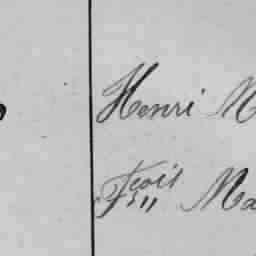 Henri M
Fçois Ma